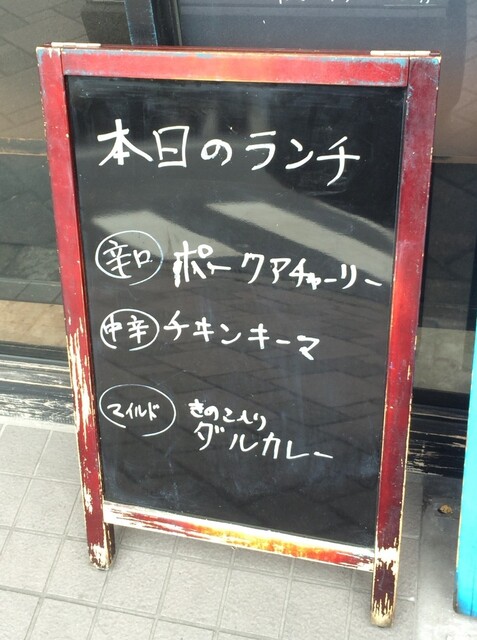 本日のランチ
辛口 ポークアチャーリー
中辛 チキンキーマ
マイルド きのこ入り
ダルカレー